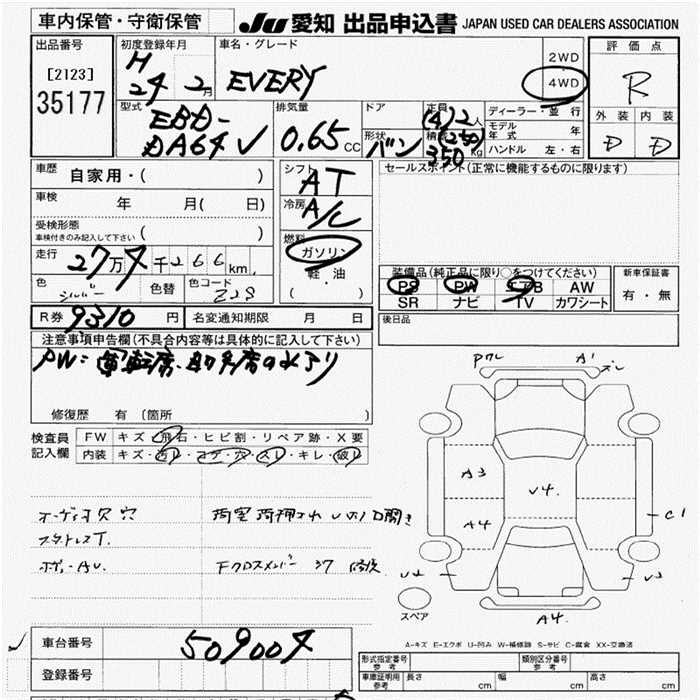 車内保管・守衛保管
JU 愛知 出品申込書 JAPAN USED CAR DEALERS ASSOCIATION
出品番号
[2123]
35177
初度登録年月
H
24 2月
車名・グレード
EVERY
2WD
4WD
評価点
R
外装 内装
D D
型式
EBD-
DA64V
排気量
0.65 CC
ドア
形状
バン
定員
(4) 2人
積載
(250)
350 Kg
ディーラー・並行
モデル年式 年
ハンドル 左・右
車歴
自家用・( )
車検
年 月( 日)
受検形態
車検付きのみ記入して下さい
( )
走行
27万4千266km
色
シルバー
色替
色コード
Z2S
シフト
AT
冷房
A/C
燃料
ガソリン
軽・油
( )
セールスポイント(正常に機能するものに限ります)
装備品(純正品に限り○をつけてください)
PS PW エアB AW
SR ナビ TV カワシート
新車保証書
有・無
R券 9310 円
名変通知期限 月 日
後日品
注意事項申告欄(不具合内容等は具体的に記入して下さい)
PW:運転席・助手席のみアリ
修復歴 有 (箇所 )
検査員
記入欄
FW キズ・飛石・ヒビ割・リペア跡・X要
内装 キズ・汚レ・コゲ・穴・スレ・キレ・破レ
オーディオ欠 穴
スタットレスT.
ボディ・AU.
Fクロスメンバー 37 修復
Pクレ A1 ズレ
A3
A4
U4.
C1
U2
U3
A4.
スペア
A-キズ E-エクボ U-凹み W-補修跡 S-サビ C-腐食 XX-交換済
車台番号
509004
登録番号
形式指定番号
参考
類別区分番号
参考
車庫証明用
参考
長さ cm 幅 cm 高さ cm